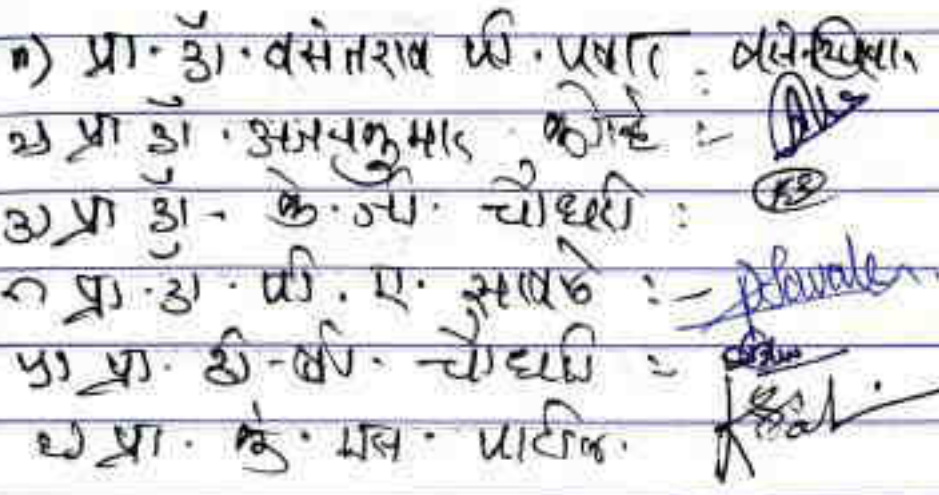 १) प्रा. डॉ. वसंतराव पी. पवार :
२) प्रा डॉ. अजयकुमार कोल्हे :-
३) प्रा डॉ - के. जी. चौधरी :
प्रा. डॉ. पी. ए. सावळे :- PSavale
५) प्रा. डी-व्ही. चौधरी :
६) प्रा. के. एस. पाटील.